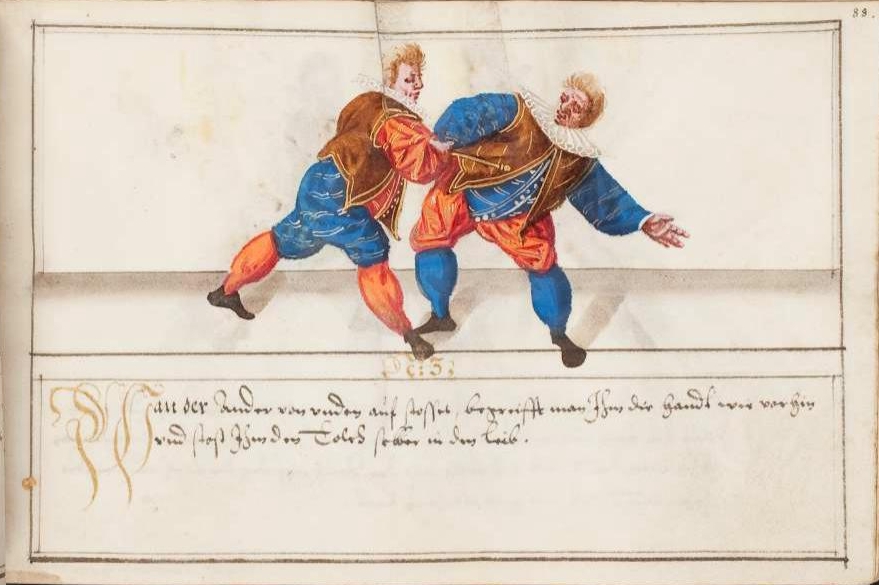 88.
Wan der Ander von vnden auf stosset, begreifft man Ihm die handt wie vorhin
vnd stost Ihm den Tolch selber in den leib.